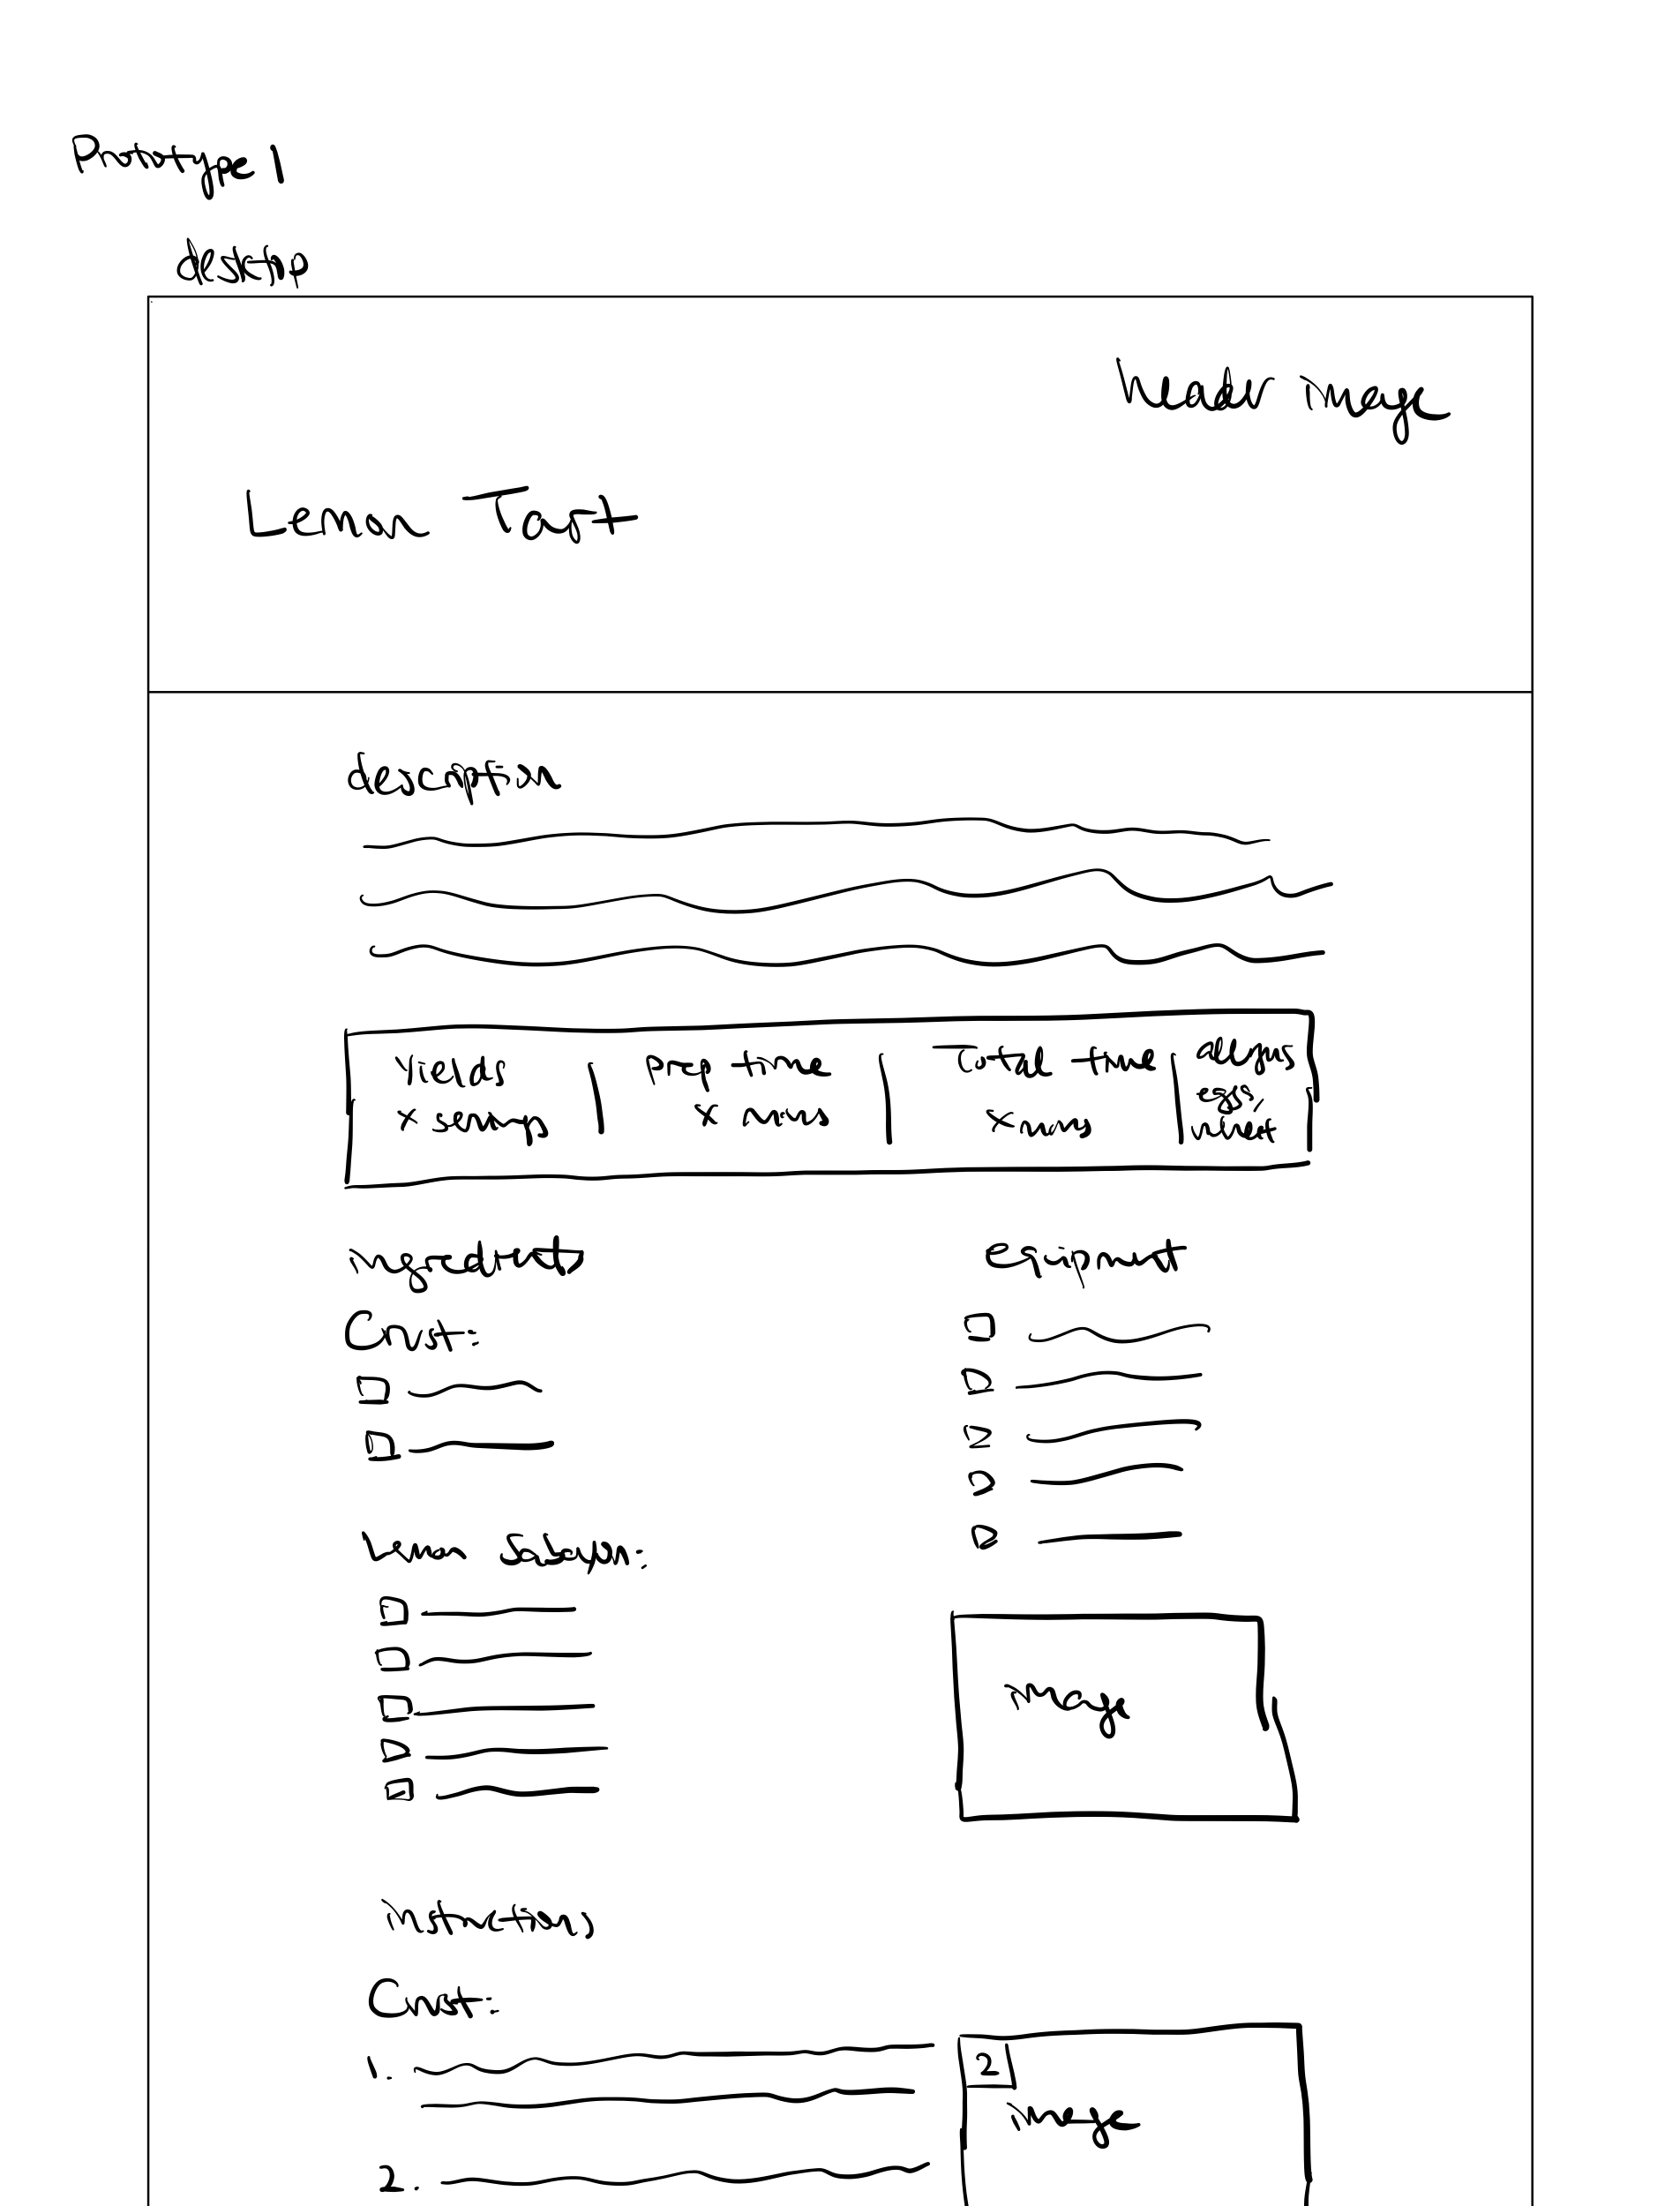 Prototype 1
desktop
header image
Lemon Tart
description
Yields
x servings
prep time
x mins
Total time
x mins
allergens
eggs,
wheat
ingredients
Crust:
equipment
lemon Sabayon:
image
instructions
Crust:
1.
2
image
2.